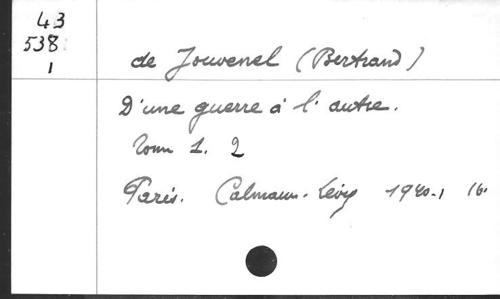 43
538
1
de Jouvenel (Bertrand)
D'une guerre à l'autre.
Tom 1. 2
Paris. Calmann-Lévy 1940-1 16°